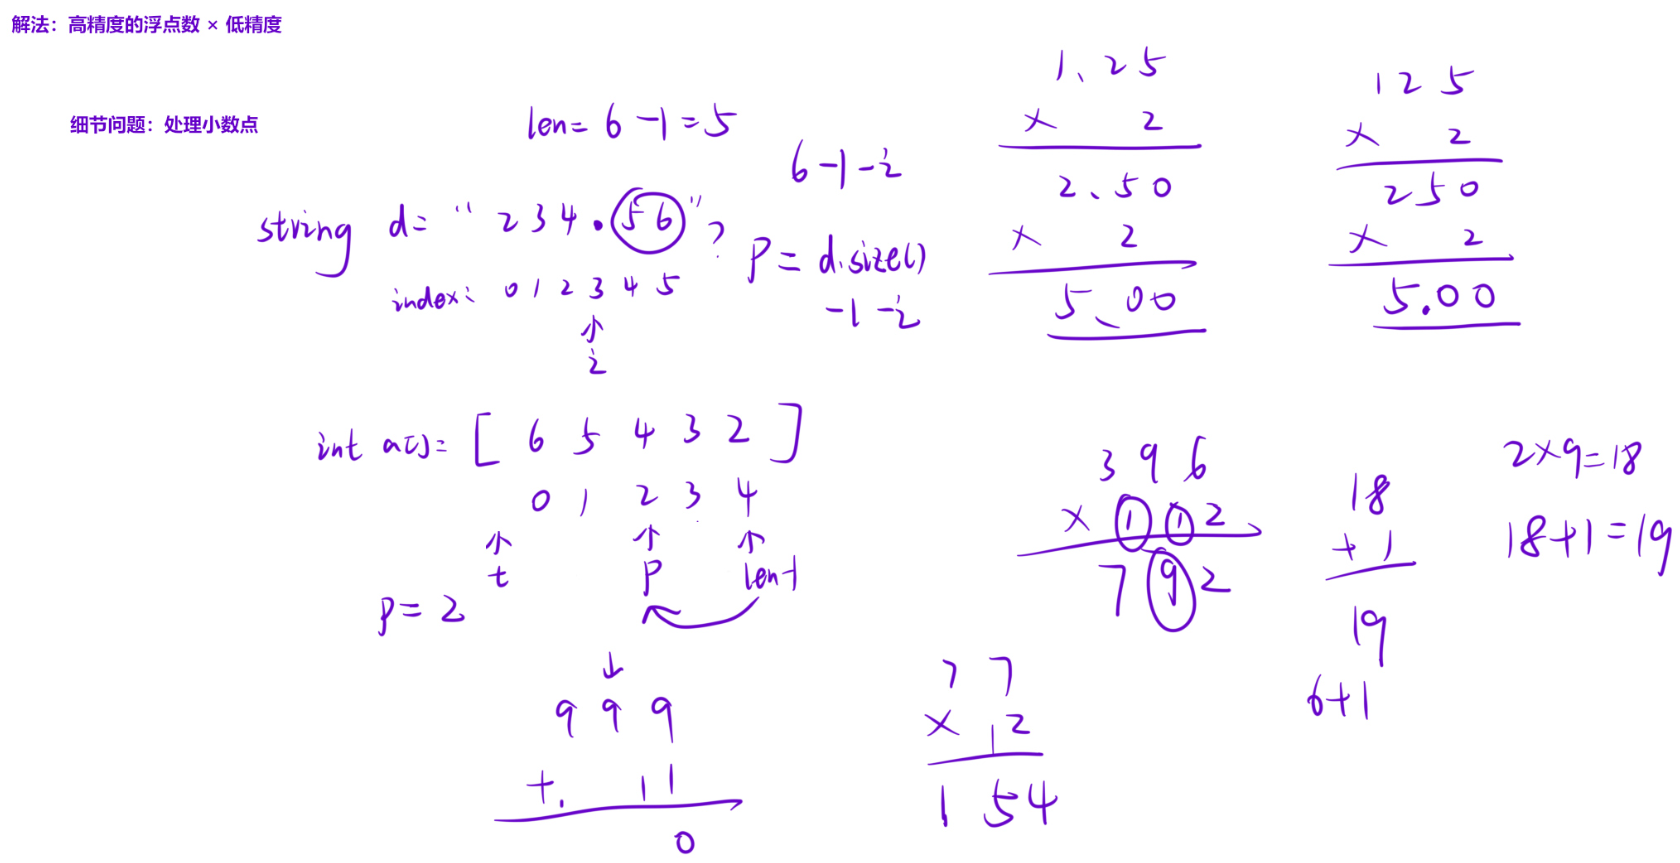 解法：高精度的浮点数 × 低精度
细节问题：处理小数点
len = 6 - 1 = 5
6 - 1 - i
string d = " 234.56 " ?
index: 0 1 2 3 4 5
↑
i
p = d.size()
- 1 - i
1.25
× 2
2.50
× 2
5.00
125
× 2
250
× 2
5.00
int a[] = [ 6 5 4 3 2 ]
0 1 2 3 4
↑ ↑ ↑
t p len-1
p = 2
↓
9 9 9
+ 1 1
0
3 9 6
× 1 1 2
7 9 2
7 7
× 1 2
1 5 4
18
+ 1
19
6+1
2×9=18
18+1=19